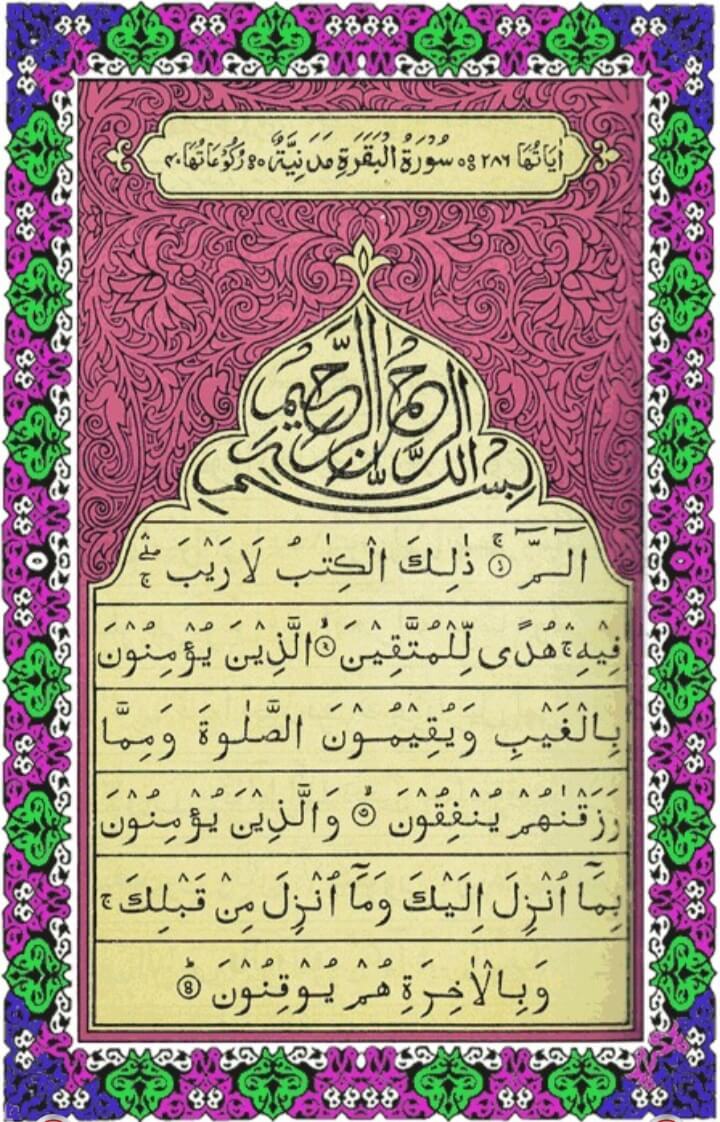 اٰيَاتُهَا ٢٨٦ سُوْرَةُ الْبَقَرَةِ مَدَنِيَّةٌ رُكُوْعَاتُهَا ٤٠
بِسْمِ اللّٰهِ الرَّحْمٰنِ الرَّحِيْمِ
الٓـمّٓ ۚ ﴿١﴾ ذٰلِكَ الْكِتٰبُ لَا رَيْبَ ۛۖۚ
فِيْهِ ۛۚ هُدًى لِّلْمُتَّقِيْنَ ۙ ﴿٢﴾ الَّذِيْنَ يُؤْمِنُوْنَ
بِالْغَيْبِ وَيُقِيْمُوْنَ الصَّلٰوةَ وَمِمَّا
رَزَقْنٰهُمْ يُنْفِقُوْنَ ۙ ﴿٣﴾ وَالَّذِيْنَ يُؤْمِنُوْنَ
بِمَاۤ اُنْزِلَ اِلَيْكَ وَمَاۤ اُنْزِلَ مِنْ قَبْلِكَ ۚ
وَبِالْاٰخِرَةِ هُمْ يُوْقِنُوْنَ ؕ ﴿٤﴾